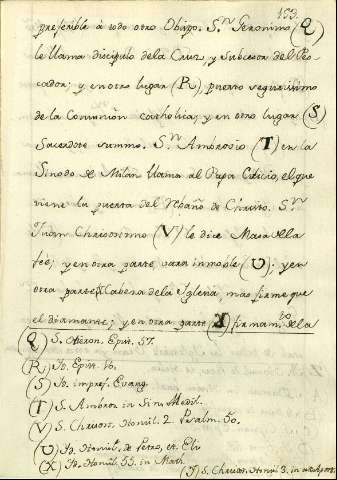 153.
preferible à todo otro Obispo. S.n Geronimo (Q)
le llama discipulo dela Cruz, y Subcesor del Pes-
cador; y en otro lugar (R), puerto segurissimo
de la Comunion catholica; y en otro lugar (S)
Sacerdote summo. S.n Ambrosio (T) en la
Sinodo de Milàn llama al Papa Ciricio, el que
viene la puerta del Rebaño de Christo. S.n
Juan Chrisostomo (V) le dice Maestro de la
feè; y en otra parte, vara inmoble (U); y en
otra parte Cabeza dela Iglesia, mas firme que
el diamante; y en otra parte (X) firmam.to de la
(Q) S. Hieron. Epist. 57.
(R) Id. Epist. 16.
(S) Id. impref. Evang.
(T) S. Ambros. in Sin. Mediol.
(V) S. Chrisost. Homil. 2. Psalm. 50.
(U) Id. Homil. de Petro, et Eli
(X) Id. Homil. 55. in Math.
S. Chrisost. Homil 3. in act. Apost.